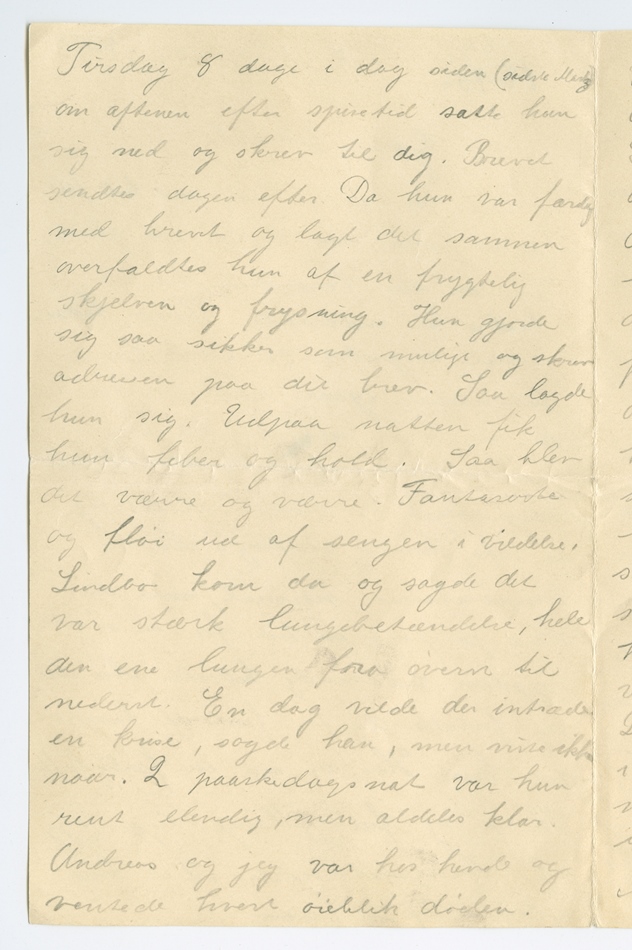 Tirsdag 8 dage i dag siden (sidste Marts)
om aftenen efter spisetid satte hun
sig ned og skrev til dig. Brevet
sendtes dagen efter. Da hun var færdig
med brevet og lagt det sammen
overfaldtes hun af en frygtelig
skjelven og frysning. Hun gjorde
sig saa sikker som mulig og skrev
adressen paa dit brev. Saa lagde
hun sig. Udpaa natten fik
hun feber og hold. Saa blev
det værre og værre. Fantaserte
og fløi ud af sengen i vildelse.
Lindbo kom da og sagde det
var stærk lungebetændelse, hele
den ene lungen fra øverst til
nederst. En dag vilde der intræde
en krise, sagde han, men viste ikke
naar. 2 paaskedagsnat var hun
rent elendig, men aldeles klar.
Andreas og jeg var hos hende og
ventede hvert øieblik døden.